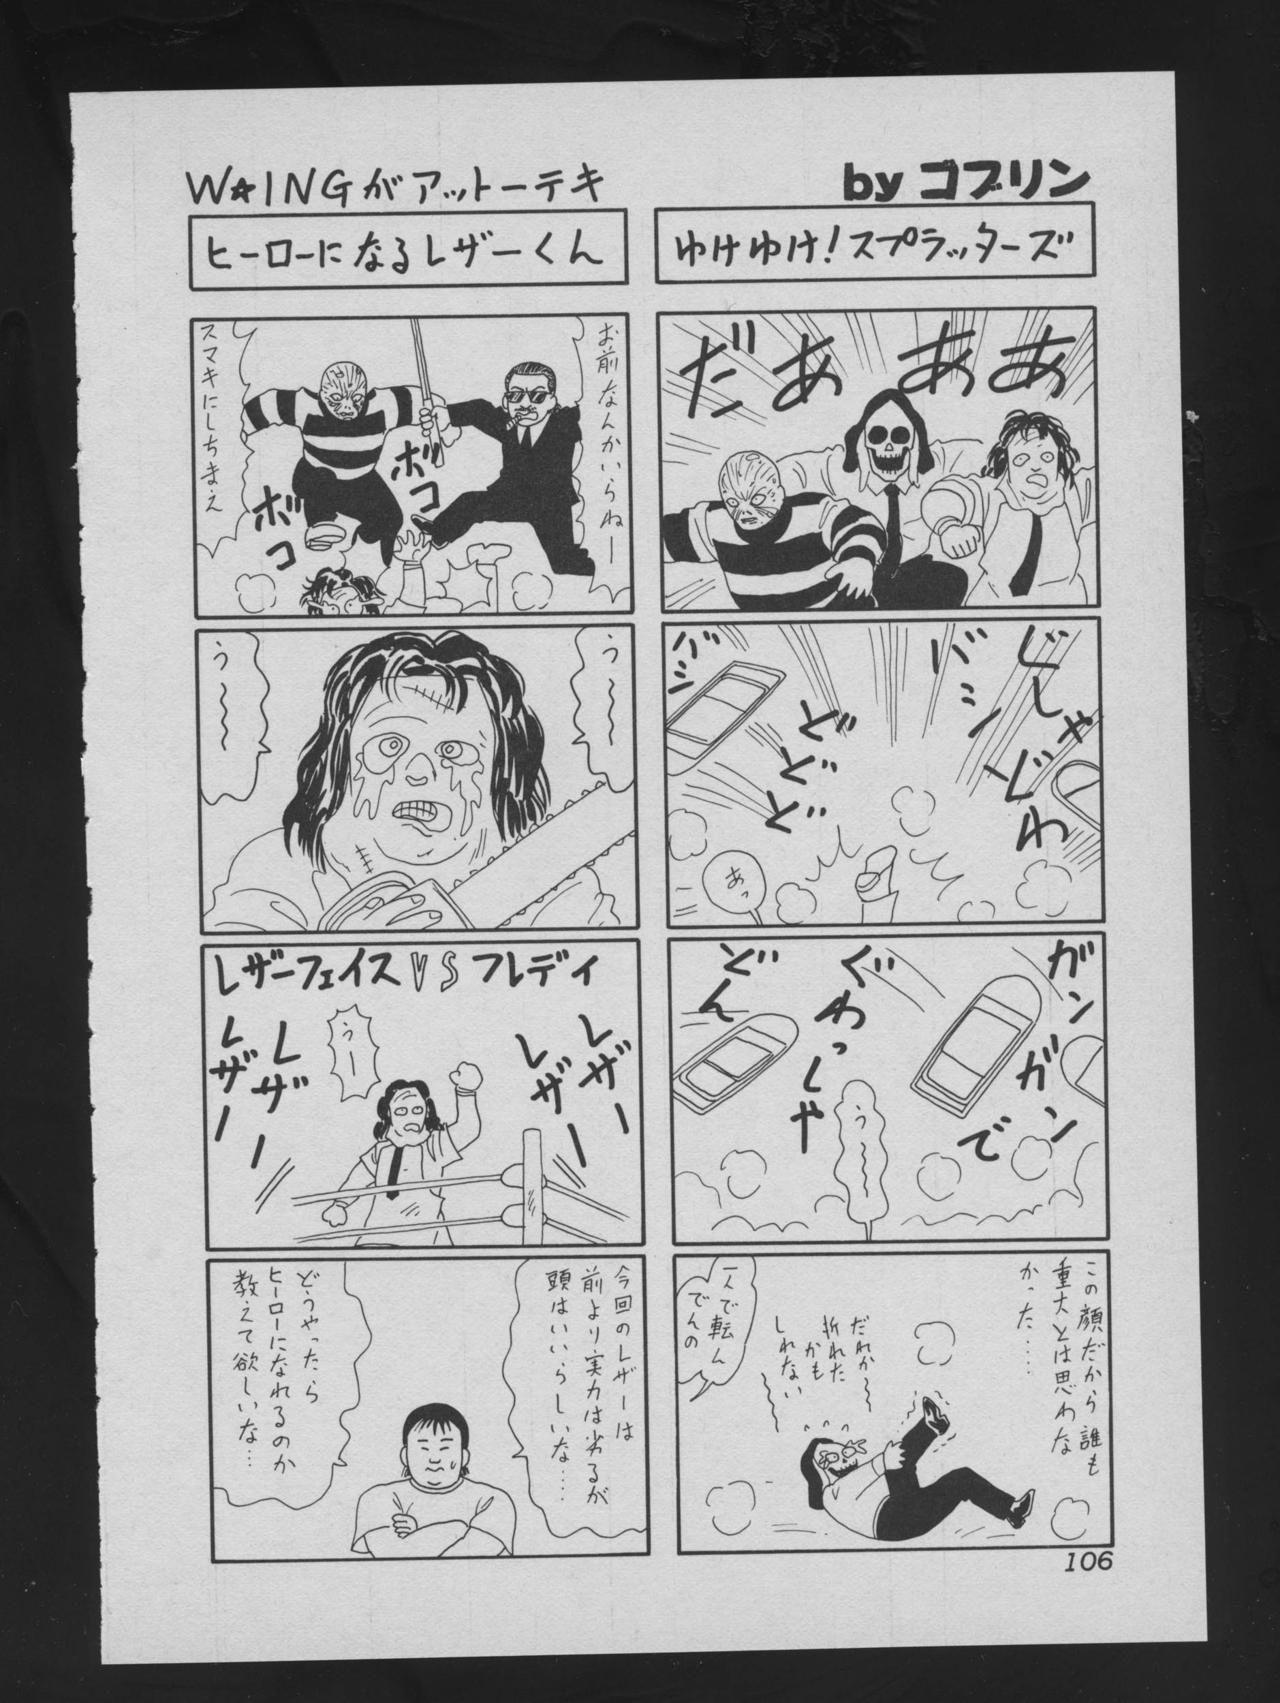 W★INGがアットーテキ
by ゴブリン
ゆけゆけ!スプラッターズ
だぁあああ
じしゃ
どじわ
バシン
バシ
どどど
あっ
ガンガンで
ぐわっしゃ
どん
うー〜〜
この顔だから誰も
重大とは思わな
かった……
だれか〜
折れた
かも
しれない
〜〜
一人で転ん
でんの
ヒーローになるレザーくん
お前なんかいらねー
スマキにしちまえ
ボコ
ボコ
う〜〜
う〜〜
レザーフェイスVSフレディ
レザー
レザー
うー
レザー
レザー
今回のレザーは
前より実力は劣るが
頭はいいらしいな……
どうやったら
ヒーローになれるのか
教えて欲しいな…
106